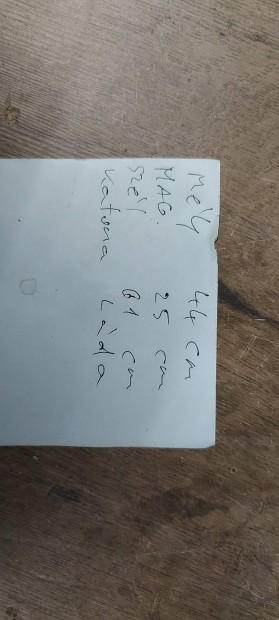 Mély 44 cm
MAG. 25 cm
Szél 61 cm
Katona Láda